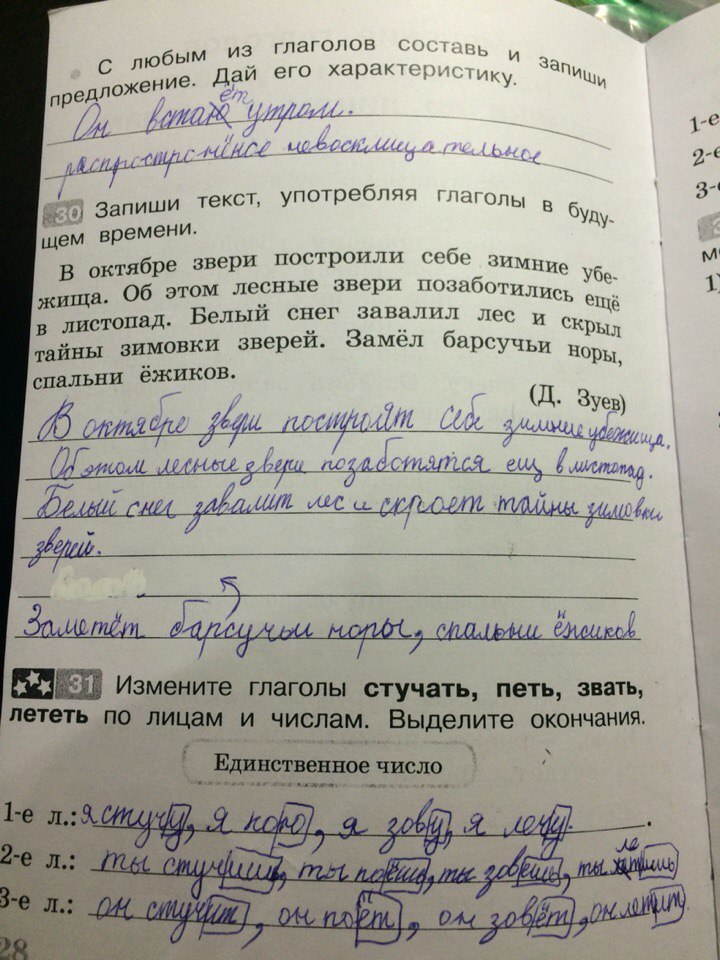 С любым из глаголов составь и запиши
предложение. Дай его характеристику.
ёт
Он встаю утром.
распространёное невосклицательное
30 Запиши текст, употребляя глаголы в буду-
щем времени.
В октябре звери построили себе зимние убе-
жища. Об этом лесные звери позаботились ещё
в листопад. Белый снег завалил лес и скрыл
тайны зимовки зверей. Замёл барсучьи норы,
спальни ёжиков.
(Д. Зуев)
В октябре звери построят себе зимние убежища.
Об этом лесные звери позаботятся ещ в листопад.
Белый снег завалит лес и скроет тайны зимовки
зверей.
Заметёт барсучьи норы, спальни ёжиков
31 Измените глаголы стучать, петь, звать,
лететь по лицам и числам. Выделите окончания.
Единственное число
1-е л.: я стучу, я пою, я зову, я лечу.
2-е л.: ты стучишь, ты поёшь, ты зовешь, ты летишь
3-е л.: он стучит, он поёт, он зовёт, он летит
28
1-е
2-е
3-е
1)